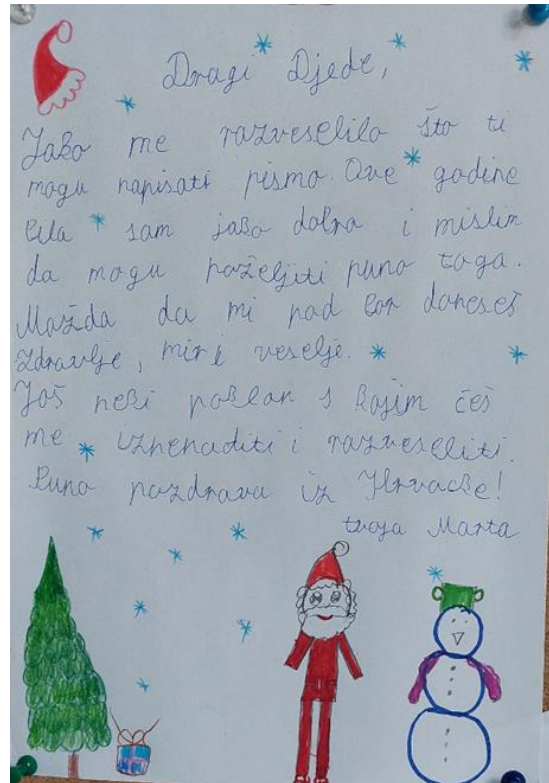 Dragi Djede,
Jako me razveselilo što ti
mogu napisati pismo. Ove godine
bila sam jako dobra i mislim
da mogu poželjiti puno toga.
Možda da mi pod bor doneseš
zdravlje, mir i veselje.
Još neki poklon s kojim češ
me iznenaditi i razveseliti.
Puno pozdrava iz Hrvacke!
tvoja Marta